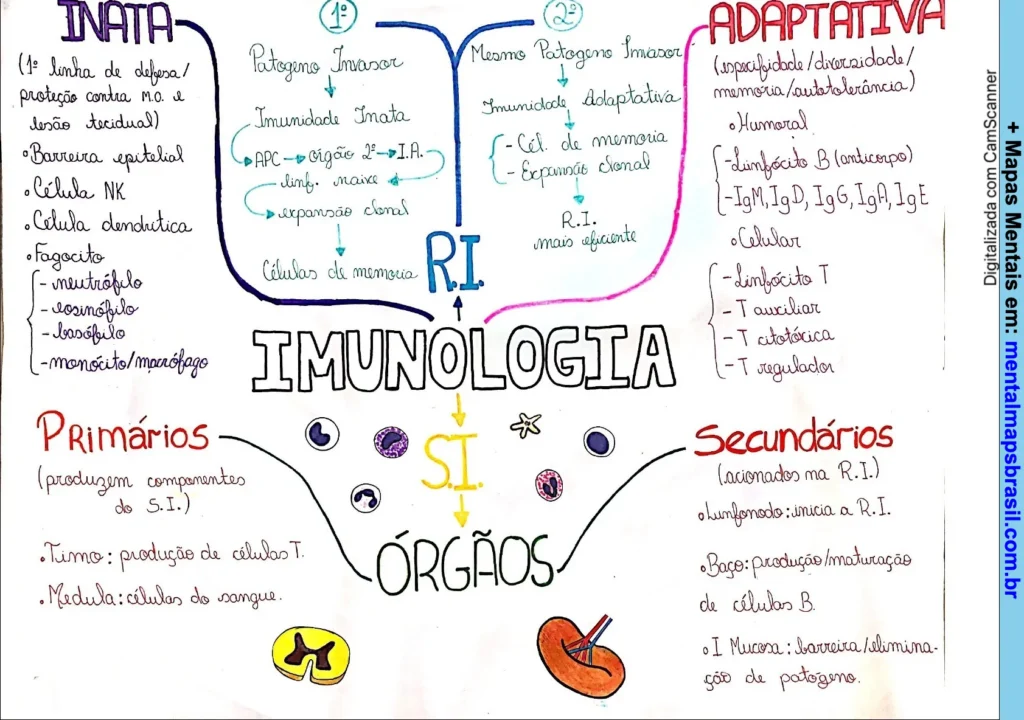 INATA
(1ª linha de defesa/
proteção contra M.O. e
lesão tecidual)
• Barreira epitelial
• Célula NK
• Célula dendrítica
• Fagocito
- neutrófilo
- eosinófilo
- basófilo
- monócito/macrófago
1º
Patogeno Invasor
Imunidade Inata
APC → órgão 2º → I.A.
linf. naive
expansão clonal
Células de memoria
R.I.
2º
Mesmo Patogeno Invasor
Imunidade Adaptativa
- Cél. de memoria
- Expansão clonal
R.I.
mais eficiente
ADAPTATIVA
(especifidade/diversidade/
memoria/autotolerância)
• Humoral
- Linfócito B (anticorpo)
- IgM, IgD, IgG, IgA, IgE
• Celular
- Linfócito T
- T auxiliar
- T citotóxica
- T regulador
IMUNOLOGIA
S.I.
ÓRGÃOS
PRIMÁRIOS
(produzem componentes
do S.I.)
• Timo: produção de células T.
• Medula: células do sangue.
Secundários
(acionados na R.I.)
• Linfonodo: inicia a R.I.
• Baço: produção/maturação
de células B.
• I Mucosa: barreira/elimina-
ção de patogeno.
Digitalizada com CamScanner
+ Mapas Mentais em: mentalmapsbrasil.com.br